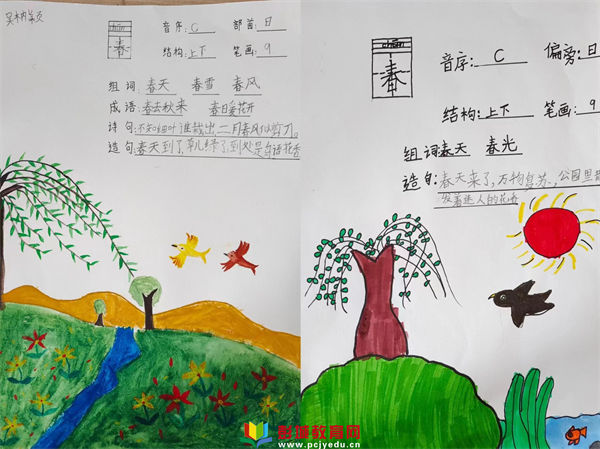 chūn
春
音序：C 部首：日
结构：上下 笔画：9
组词：春天 春雪 春风
成语：春去秋来 春日暖花开
诗句：不知细叶谁裁出，二月春风似剪刀。
造句：春天到了，草儿绿了，到处是鸟语花香
chūn
春
音序：C 偏旁：日
结构：上下 笔画：9
组词春天 春光
造句：春天来了，万物复苏，公园里
发着迷人的花香
彭城教育网
www.pcjyedu.cn